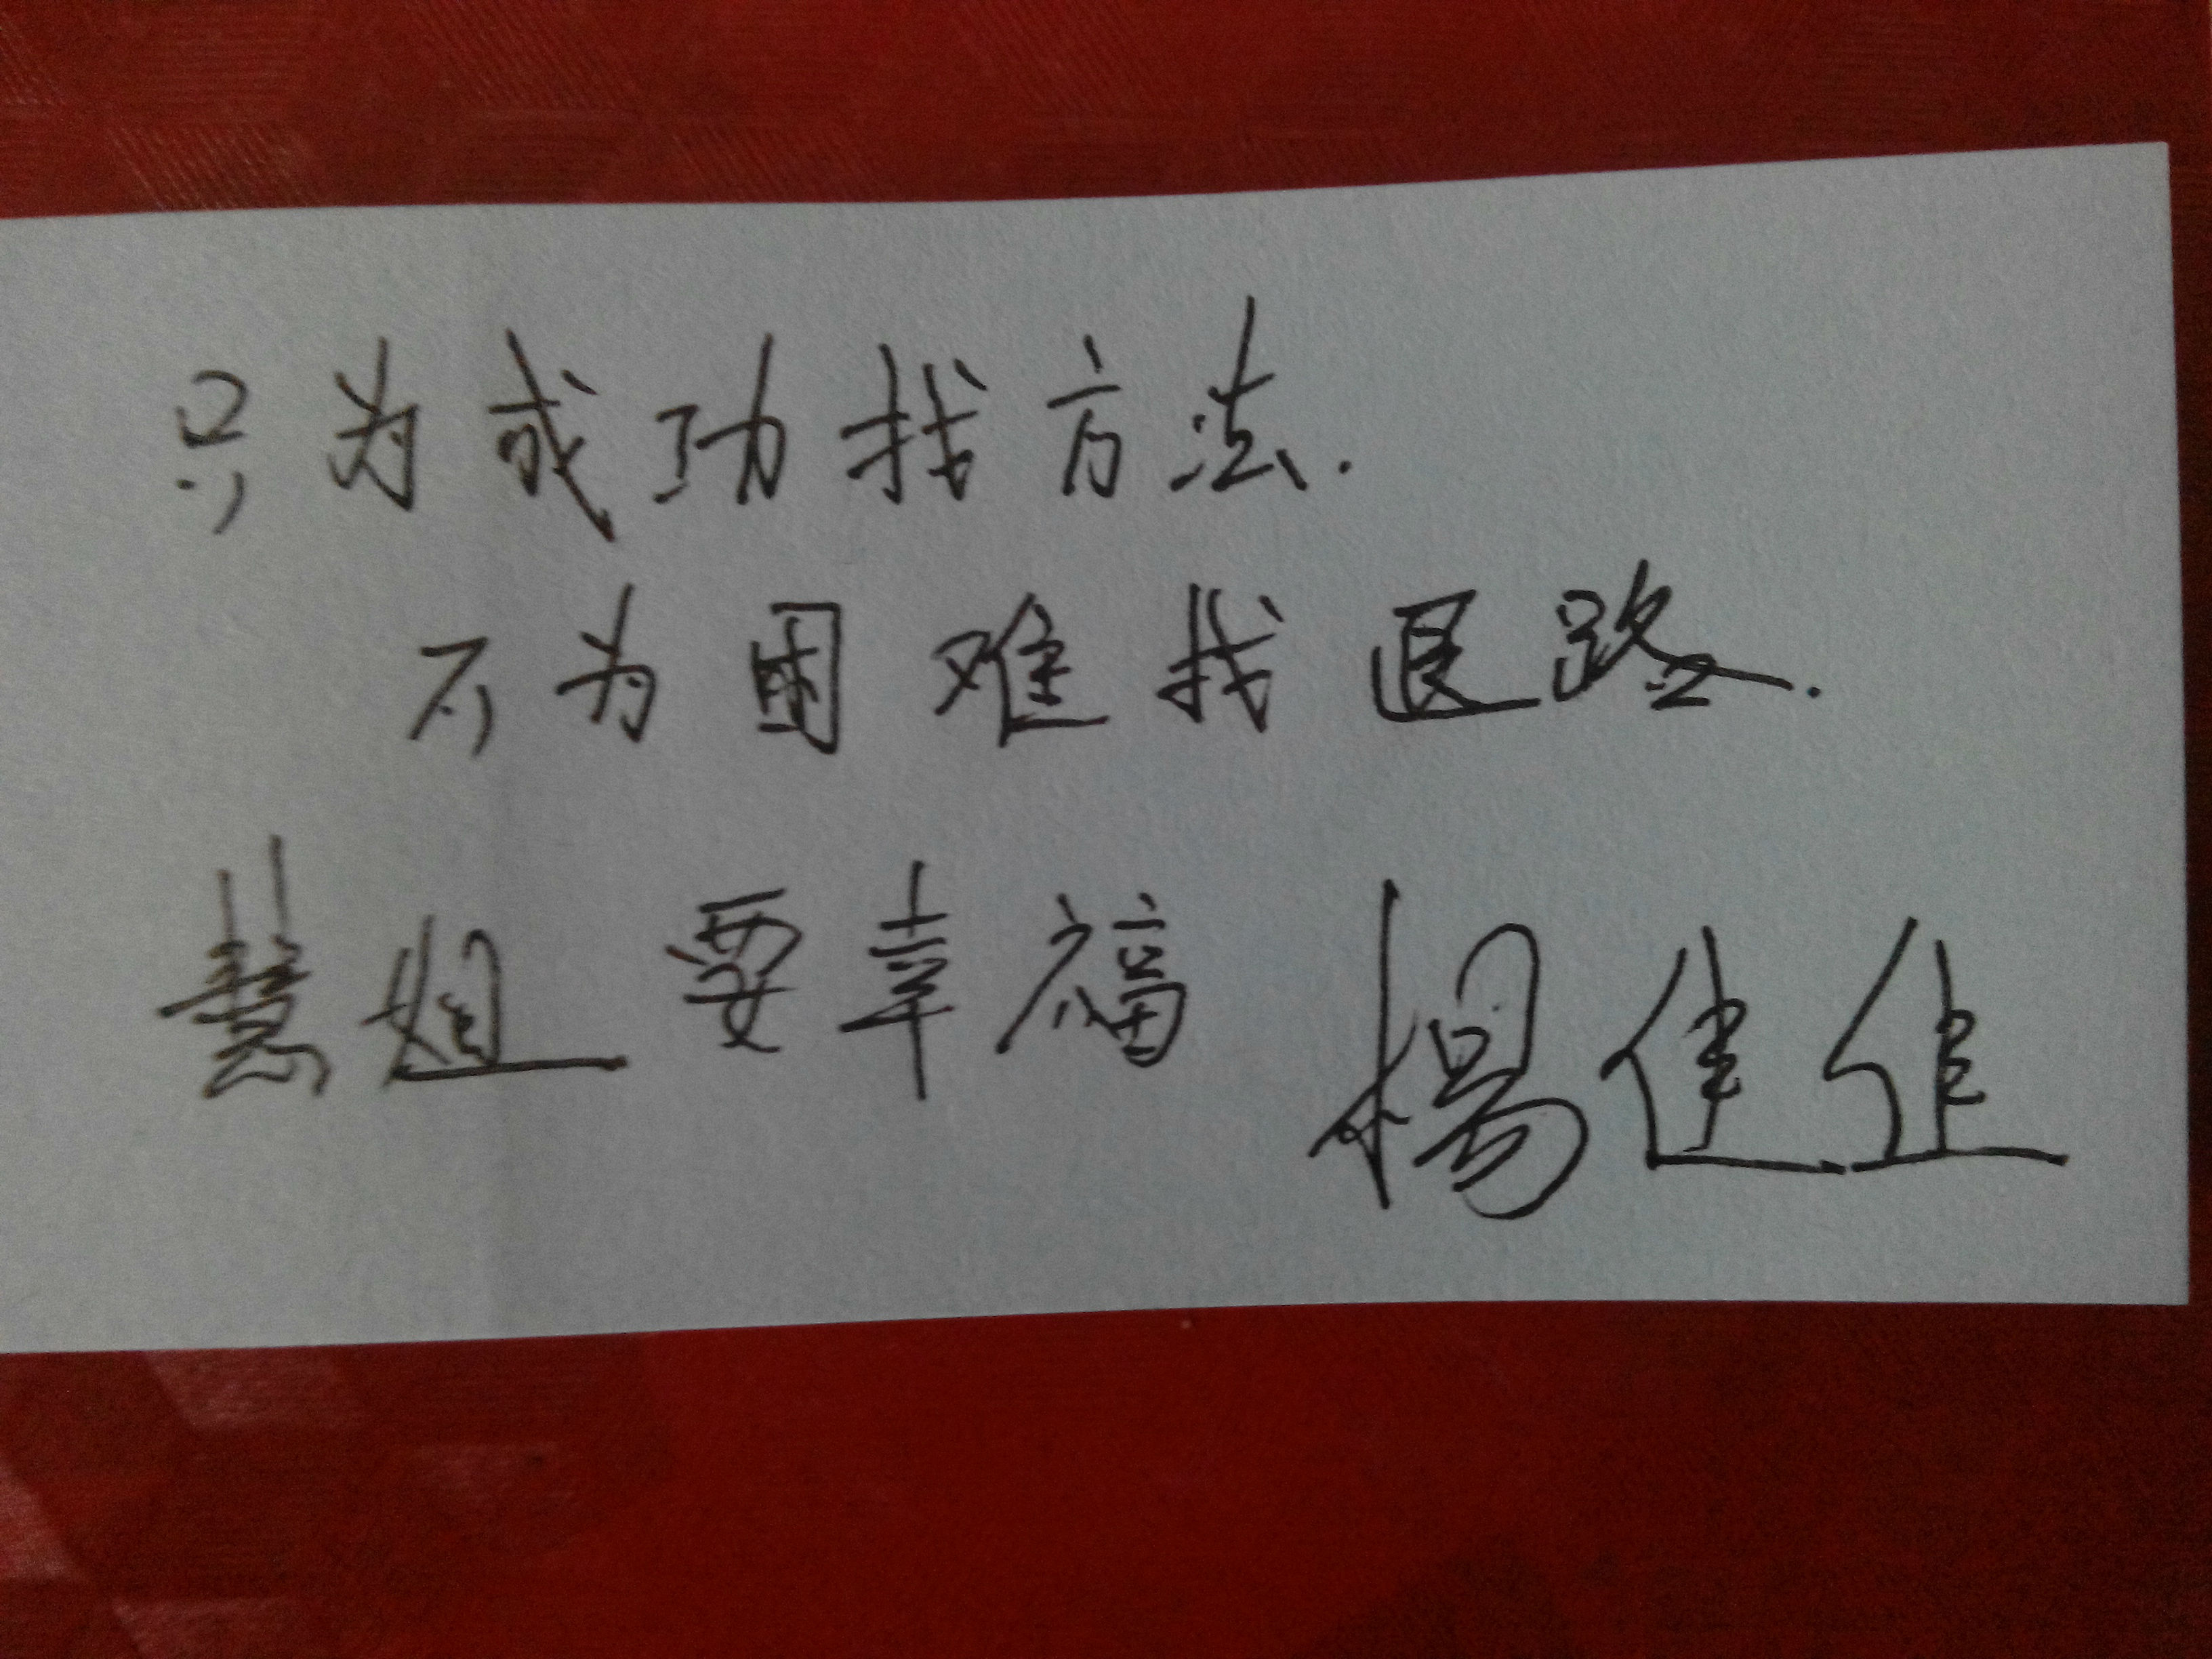 只为成功找方法.
不为困难找退路.
慧姐 要幸福 杨佳佳